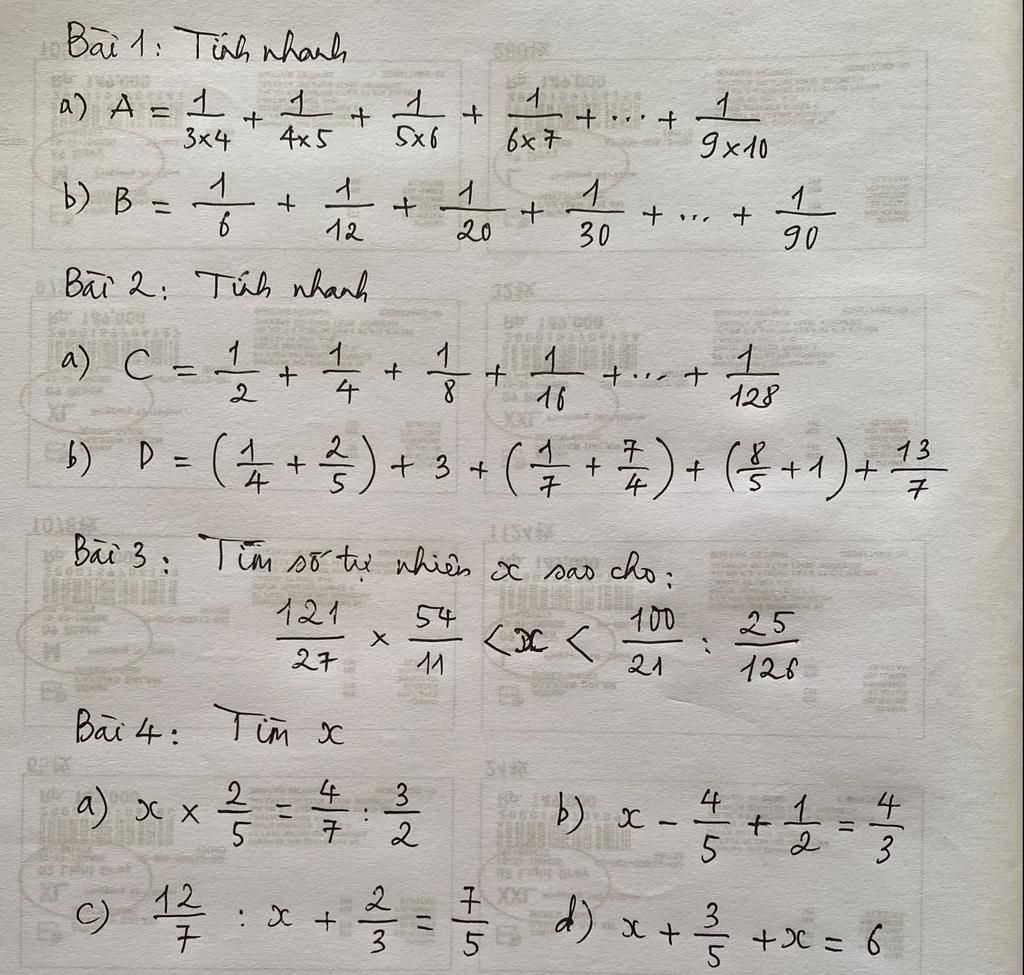 Bài 1: Tính nhanh
a) A = 1/3×4 + 1/4×5 + 1/5×6 + 1/6×7 + ... + 1/9×10
b) B = 1/6 + 1/12 + 1/20 + 1/30 + ... + 1/90
Bài 2: Tính nhanh
a) C = 1/2 + 1/4 + 1/8 + 1/16 + ... + 1/128
b) D = (1/4 + 2/5) + 3 + (1/7 + 7/4) + (8/5 + 1) + 13/7
Bài 3: Tìm số tự nhiên x sao cho:
121/27 × 54/11 < x < 100/21 : 25/126
Bài 4: Tìm x
a) x × 2/5 = 4/7 : 3/2 b) x - 4/5 + 1/2 = 4/3
c) 12/7 : x + 2/3 = 7/5 d) x + 3/5 + x = 6